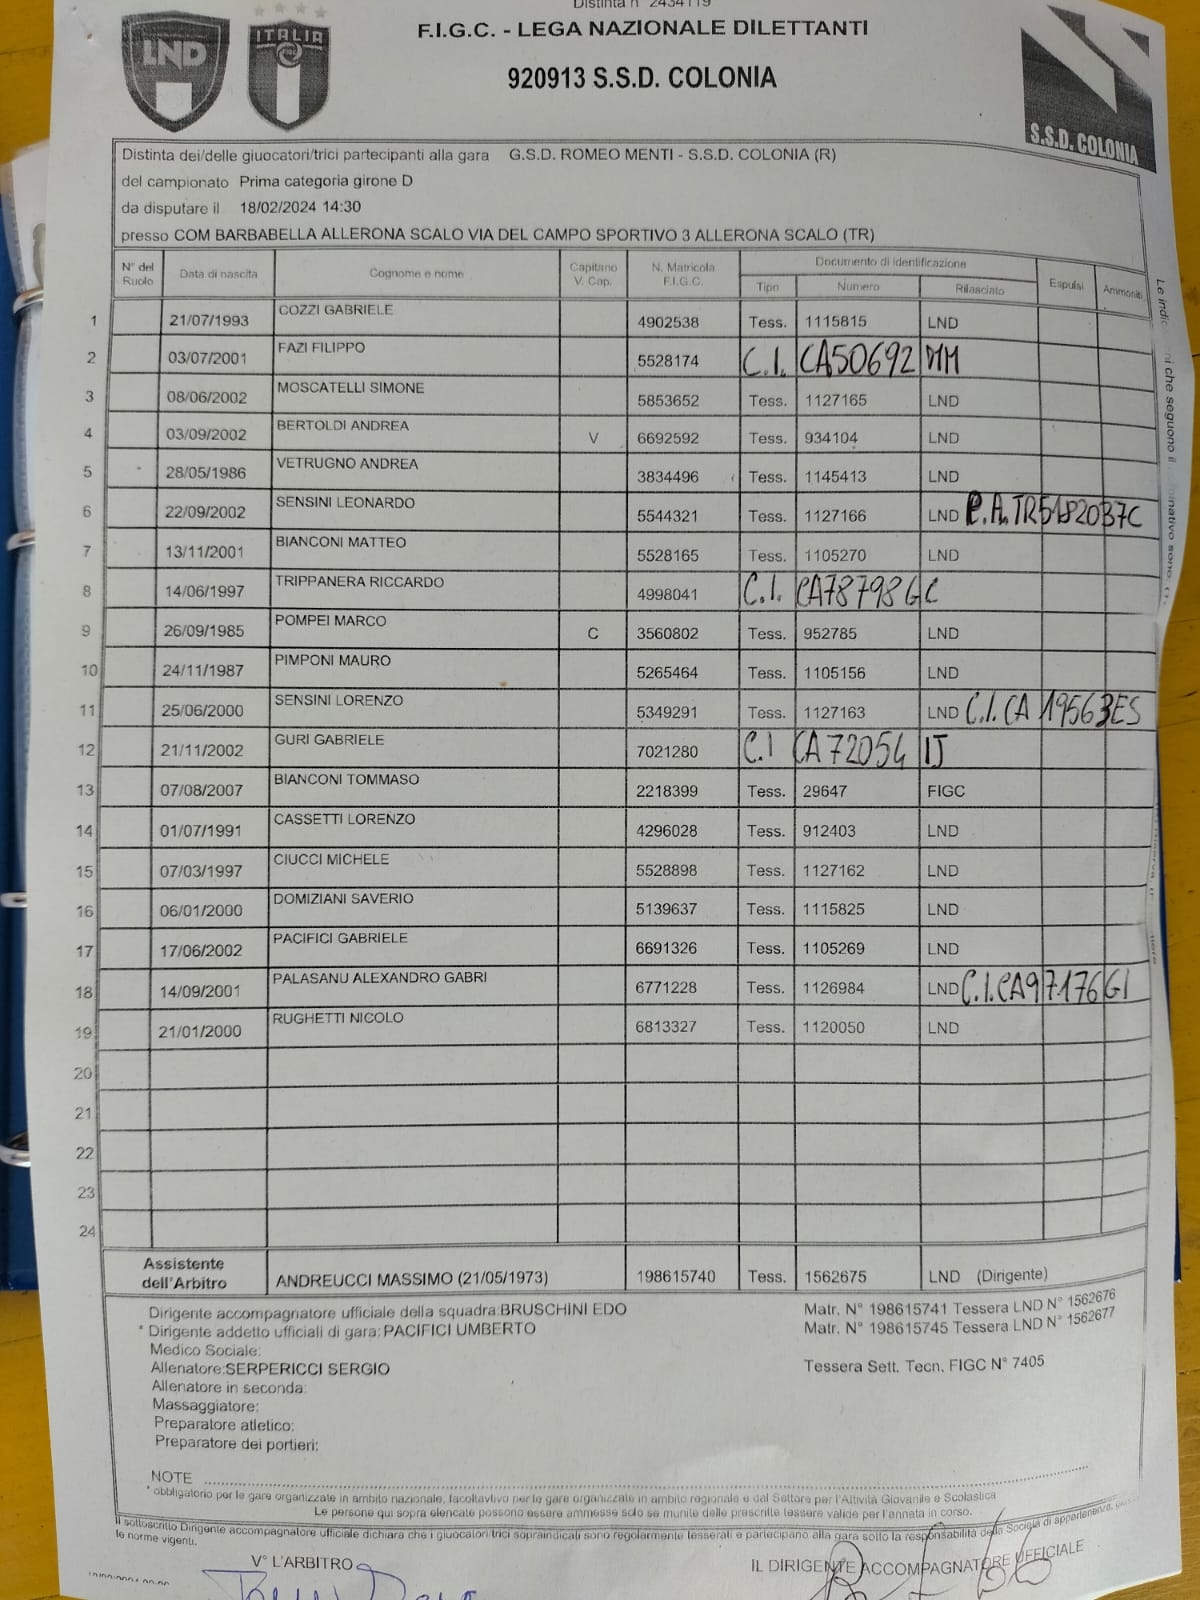 Distinta n° 2434119
F.I.G.C. - LEGA NAZIONALE DILETTANTI
LND
ITALIA
920913 S.S.D. COLONIA
S.S.D. COLONIA
Distinta dei/delle giuocatori/trici partecipanti alla gara G.S.D. ROMEO MENTI - S.S.D. COLONIA (R)
del campionato Prima categoria girone D
da disputare il 18/02/2024 14:30
presso COM BARBABELLA ALLERONA SCALO VIA DEL CAMPO SPORTIVO 3 ALLERONA SCALO (TR)
N° del Ruolo Data di nascita Cognome e nome Capitano V. Cap. N. Matricola F.I.G.C. Documento di identificazione Espulsi Ammoniti
Tipo Numero Rilasciato
1 21/07/1993 COZZI GABRIELE 4902538 Tess. 1115815 LND
2 03/07/2001 FAZI FILIPPO 5528174 C.I. CA50692MM
3 08/06/2002 MOSCATELLI SIMONE 5853652 Tess. 1127165 LND
4 03/09/2002 BERTOLDI ANDREA V 6692592 Tess. 934104 LND
5 28/05/1986 VETRUGNO ANDREA 3834496 Tess. 1145413 LND
6 22/09/2002 SENSINI LEONARDO 5544321 Tess. 1127166 LND
7 13/11/2001 BIANCONI MATTEO 5528165 Tess. 1105270 LND
8 14/06/1997 TRIPPANERA RICCARDO 4998041 C.I. CA78798GC
9 26/09/1985 POMPEI MARCO C 3560802 Tess. 952785 LND
10 24/11/1987 PIMPONI MAURO 5265464 Tess. 1105156 LND
11 25/06/2000 SENSINI LORENZO 5349291 Tess. 1127163 LND C.I. CA 19563ES
12 21/11/2002 GURI GABRIELE 7021280 C.I CA72054 IJ
13 07/08/2007 BIANCONI TOMMASO 2218399 Tess. 29647 FIGC
14 01/07/1991 CASSETTI LORENZO 4296028 Tess. 912403 LND
15 07/03/1997 CIUCCI MICHELE 5528898 Tess. 1127162 LND
16 06/01/2000 DOMIZIANI SAVERIO 5139637 Tess. 1115825 LND
17 17/06/2002 PACIFICI GABRIELE 6691326 Tess. 1105269 LND
18 14/09/2001 PALASANU ALEXANDRO GABRI 6771228 Tess. 1126984 LND C.I. CA97176GI
19 21/01/2000 RUGHETTI NICOLO 6813327 Tess. 1120050 LND
20
21
22
23
24
Assistente dell'Arbitro ANDREUCCI MASSIMO (21/05/1973) 198615740 Tess. 1562675 LND (Dirigente)
Dirigente accompagnatore ufficiale della squadra:BRUSCHINI EDO Matr. N° 198615741 Tessera LND N° 1562676
* Dirigente addetto ufficiali di gara: PACIFICI UMBERTO Matr. N° 198615745 Tessera LND N° 1562677
Medico Sociale:
Allenatore:SERPERICCI SERGIO Tessera Sett. Tecn. FIGC N° 7405
Allenatore in seconda:
Massaggiatore:
Preparatore atletico:
Preparatore dei portieri:
NOTE
* obbligatorio per le gare organizzate in ambito nazionale, facoltavtivo per le gare organizzate in ambito regionale e dal Settore per l'Attività Giovanile e Scolastica
Le persone qui sopra elencate possono essere ammesse solo se munite delle prescritte tessere valide per l'annata in corso.
Il sottoscritto Dirigente accompagnatore ufficiale dichiara che i giuocatori/trici sopraindicati sono regolarmente tesserati e partecipano alla gara sotto la responsabilità della Società di appartenenza,
le norme vigenti.
V° L'ARBITRO IL DIRIGENTE ACCOMPAGNATORE UFFICIALE